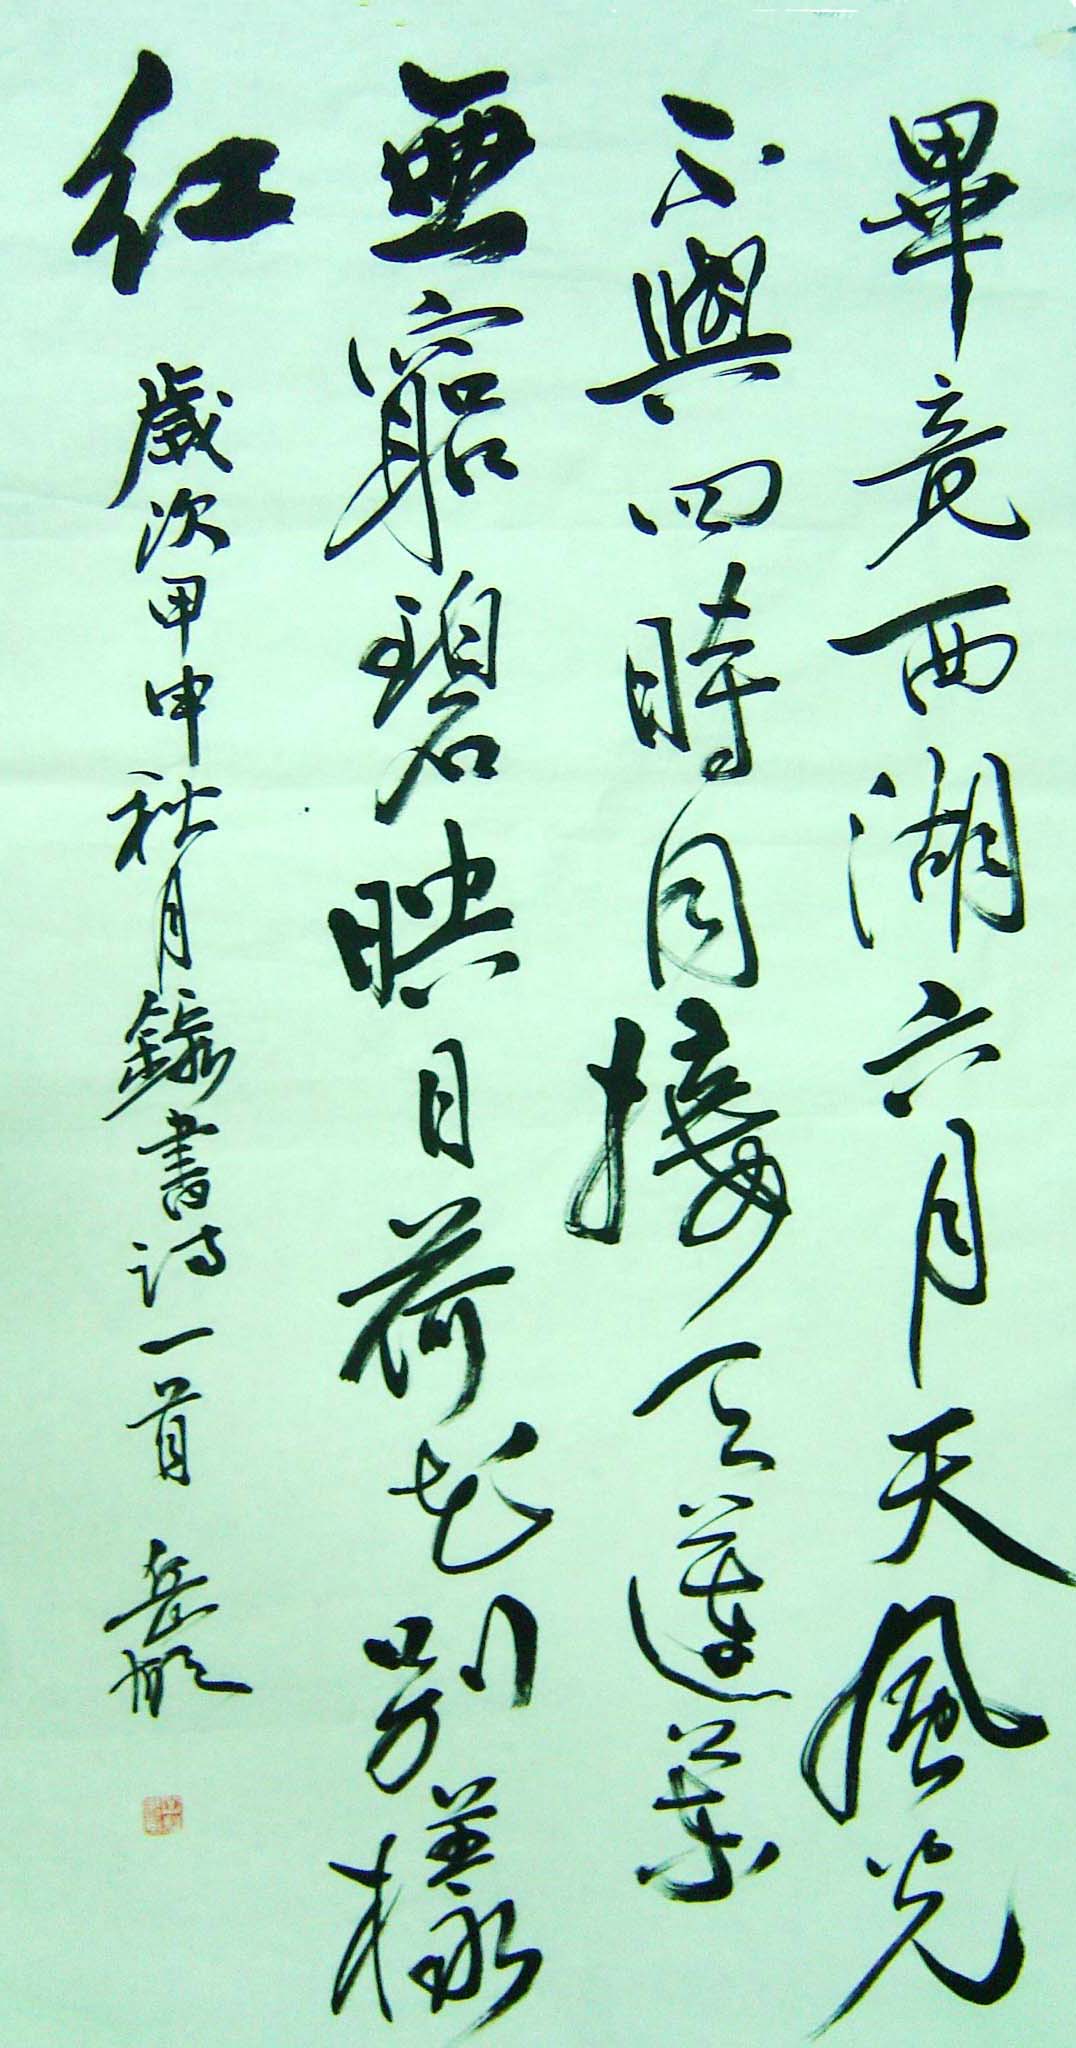 畢竟西湖六月天風光
不與四時同接天蓮葉
無窮碧映日荷花別樣
紅 歲次甲申秋月錄書詩一首